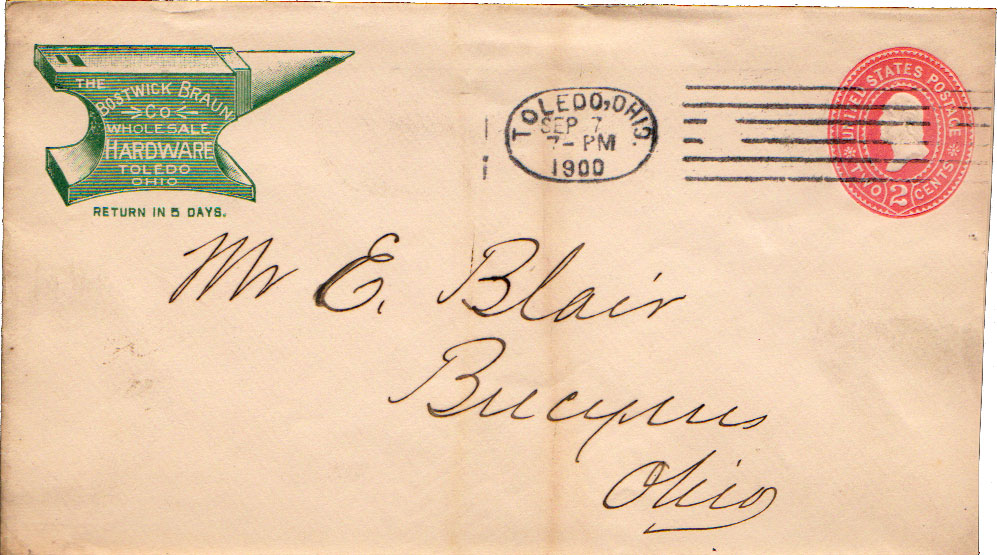 THE
BOSTWICK BRAUN
CO
WHOLESALE
HARDWARE
TOLEDO
OHIO
RETURN IN 5 DAYS.
TOLEDO, OHIO.
SEP 7
7-PM
1900
UNITED STATES POSTAGE
TWO 2 CENTS
Mr E. Blair
Bucyrus
Ohio